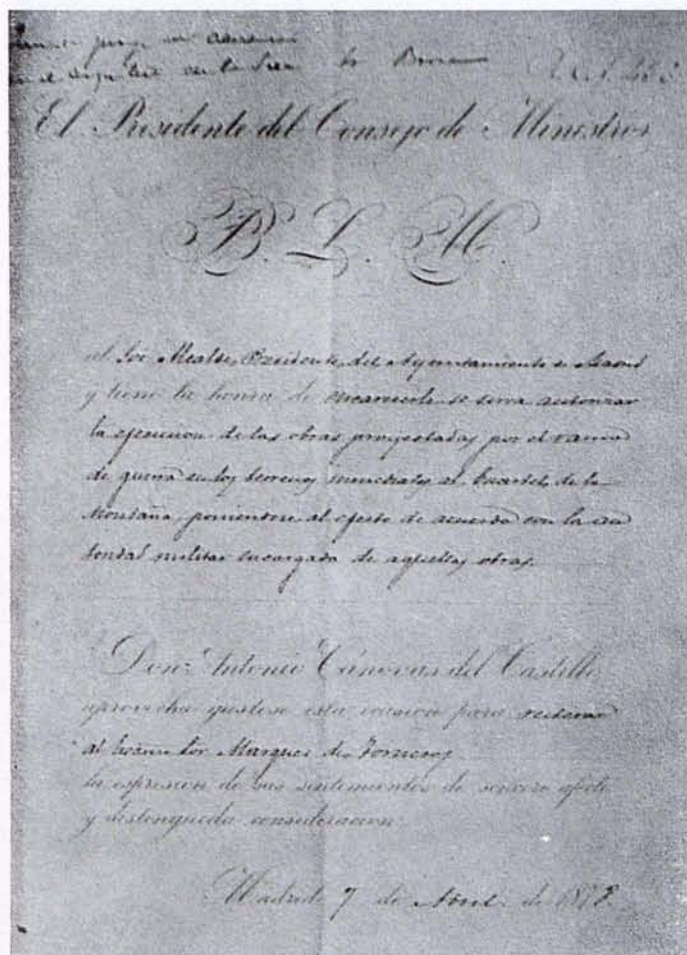 El Presidente del Consejo de Ministros
B. L. M.
al Sor Alcalde, Presidente, del Ayuntamiento de Madrid
y tiene la honra de encarecerle se sirva autorizar
la ejecucion de las obras proyectadas por el ramo
de guerra en los terrenos inmediatos al Cuartel de la
Montaña poniendose al efecto de acuerdo con la au
toridad militar encargada de aquellas obras.
Don Antonio Cánovas del Castillo
aprovecha gustoso esta ocasion para reiterar
al Sor Marques de Torneros
la espresion de sus sentimientos de sincero afecto
y distinguida consideracion
Madrid 7 de Abril de 1878